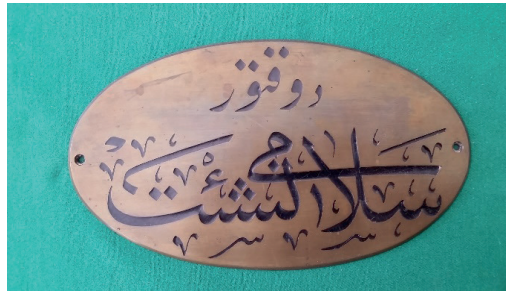 دوقتور
سلامی نشئت